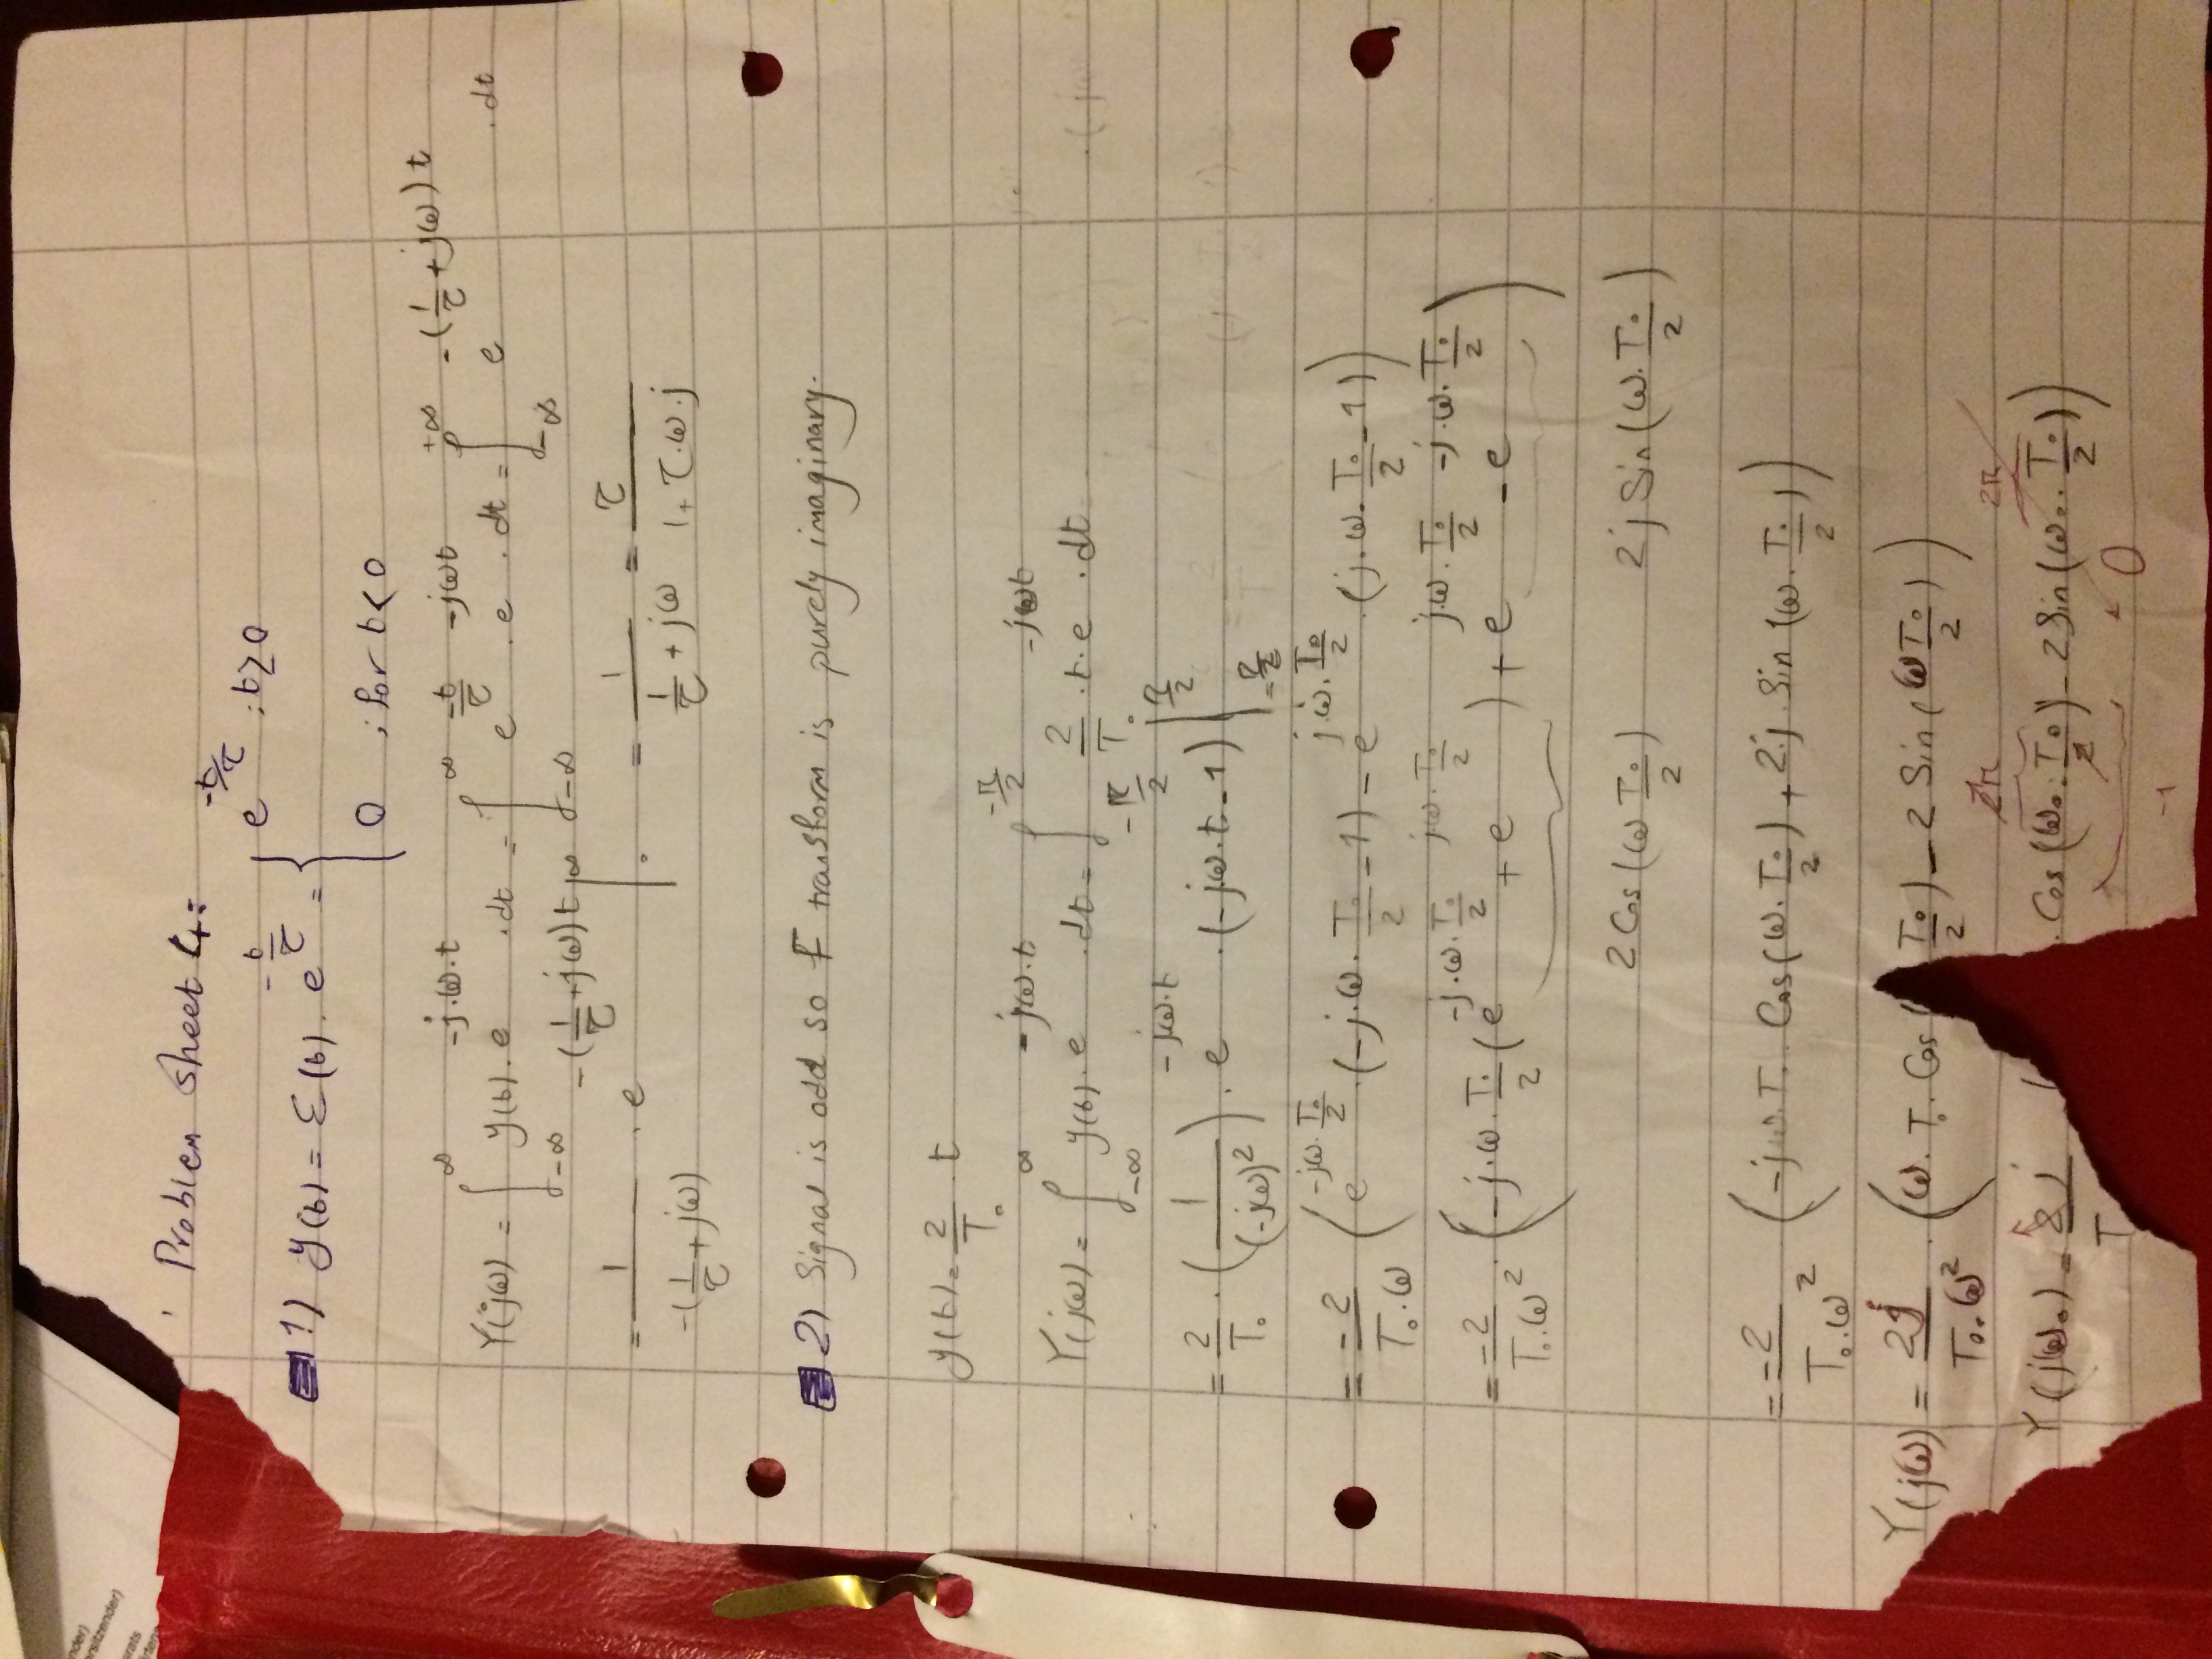 nder)
orsitzender)
srats
Problem Sheet 4:
1) y(t) = ε(t) . e^{-t/τ} = { e^{-t/τ} ; t ≥ 0
0 ; for t < 0
Y(jω) = ∫_{-∞}^{∞} y(t) . e^{-j.ω.t} . dt = ∫_{-∞}^{∞} e^{-t/τ} . e^{-jωt} . dt = ∫_{-∞}^{+∞} e^{-(1/τ + jω)t} . dt
= 1/(-(1/τ + jω)) . e^{-(1/τ + jω)t} |_0^∞ = 1/(1/τ + jω) = τ/(1 + τ.ω.j)
2) Signal is odd so F transform is purely imaginary.
y(t) = 2/T₀ t
Y(jω) = ∫_{-∞}^{∞} y(t) . e^{-jω.t} . dt = ∫_{-π/2}^{-π/2} 2/T₀ . t . e^{-jωt} . dt
= 2/T₀ . (1/(-jω)²) . e^{-jω.t} . (-jω.t - 1) |_{-π/2}^{π/2}
= -2/(T₀.ω) (e^{-jω.T₀/2} . (-j.ω.T₀/2 - 1) - e^{j.ω.T₀/2} . (j.ω.T₀/2 - 1))
= -2/(T₀.ω²) . (-j.ω.T₀/2 (e^{-j.ω.T₀/2} + e^{jω.T₀/2}) + e^{j.ω.T₀/2} - e^{-j.ω.T₀/2})
2 Cos(ω T₀/2) 2j Sin(ω.T₀/2)
= -2/(T₀.ω²) (-jω.T₀. Cos(ω.T₀/2) + 2.j Sin(ω.T₀/2))
Y(jω) = 2j/(T₀.ω²) . (ω.T₀. Cos( T₀/2) - 2 Sin(ωT₀/2))
2π 2π
Y(jω₀) = 2j/T ( . Cos(ω₀.T₀/2) - 2 Sin(ω₀.T₀/2))
-1 0